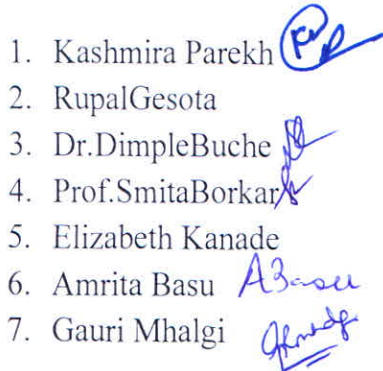 1. Kashmira Parekh
2. RupalGesota
3. Dr.DimpleBuche
4. Prof.SmitaBorkar
5. Elizabeth Kanade
6. Amrita Basu ABasu
7. Gauri Mhalgi